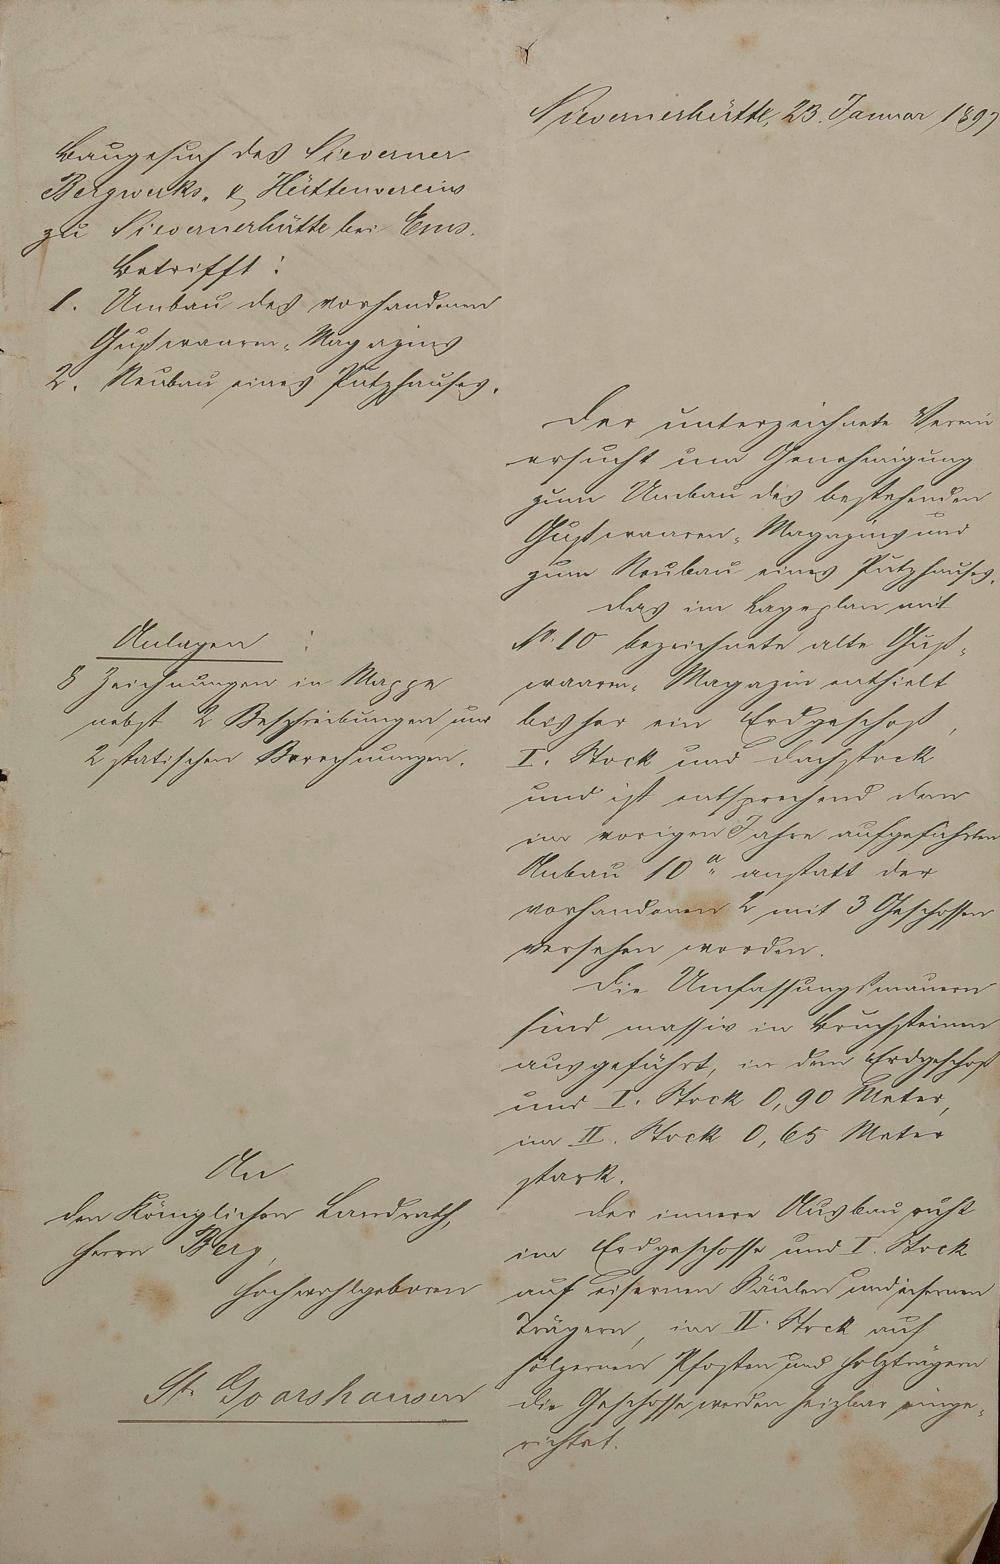 Nievernerhütte, 23. Januar 1897
Baugesuch des Nieverner
Bergwerks- & Hüttenvereins
zu Nievernerhütte bei Ems.
Betrifft:
1. Umbau des vorhandenen
Gußwaaren-Magazins
2. Neubau eines Putzhauses.
Anlagen:
8 Zeichnungen in Mappe
nebst 2 Beschreibungen und
2 statischen Berechnungen.
An
den Königlichen Landrath,
Herrn Berg,
Hochwohlgeboren
St. Goarshausen
Der unterzeichnete Verein
ersucht um Genehmigung
zum Umbau des bestehenden
Gußwaaren-Magazins und
zum Neubau eines Putzhauses.
Das im Lageplan mit
No. 10 bezeichnete alte Guß-
waaren-Magazin enthielt
bisher ein Erdgeschoß,
I. Stock und Dachstock
und ist entsprechend dem
im vorigen Jahre aufgeführten
Anbau 10a anstatt der
vorhandenen 2 mit 3 Geschossen
versehen worden.
Die Umfassungsmauern
sind massiv in Bruchsteinen
ausgeführt, in dem Erdgeschoß
und I. Stock 0,90 Meter,
im II. Stock 0,65 Meter
stark.
Der innere Ausbau ruht
im Erdgeschosse und I. Stock
auf eisernen Säulen und eisernen
Trägern, im II. Stock auf
hölzernen Pfosten und Holzträgern
die Geschosse werden heizbar einge-
richtet.